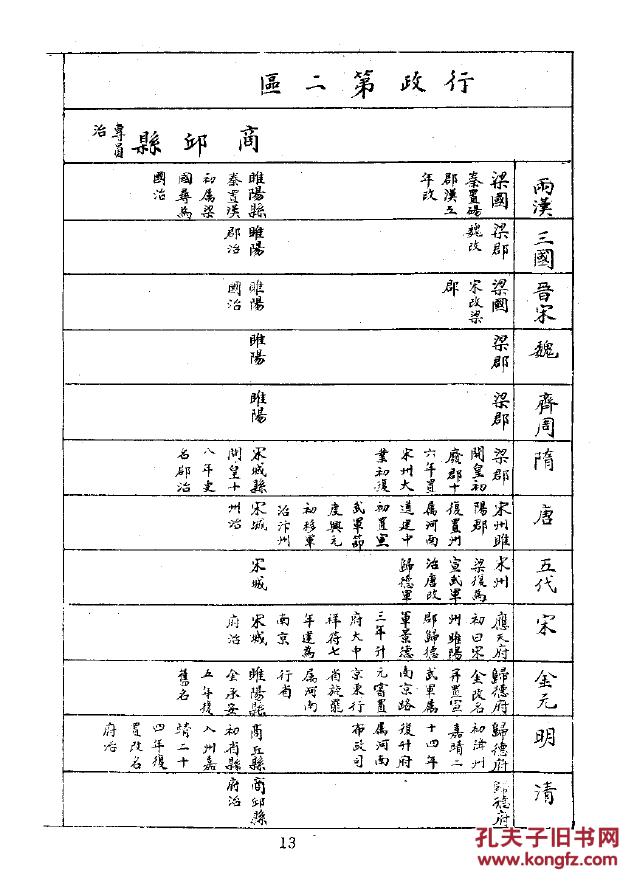 行政第二區
商邱縣 專員治
兩漢
梁國
秦置碭
郡漢五
年改
睢陽縣
秦置漢
初屬梁
國尋為
國治
三國
梁郡
魏改
睢陽
郡治
晉宋
梁國
宋改梁
郡
睢陽
國治
魏
梁郡
睢陽
齊周
梁郡
睢陽
隋
梁郡
開皇初
廢郡十
六年置
宋州大
業初復
宋城縣
開皇十
八年更
名郡治
唐
宋州睢
陽郡
復置州
屬河南
道建中
初置宣
武軍節
度興元
初移軍
治汴州
宋城
州治
五代
宋州
梁復為
宣武軍
治唐改
歸德軍
宋城
宋
應天府
初曰宋
州睢陽
郡歸德
軍景德
三年升
府大中
祥符七
年建為
南京
宋城
府治
金元
歸德府
金改名
再置宣
武軍屬
南京路
元當置
京東行
省旋罷
屬河南
行省
睢陽縣
金承安
五年復
舊名
明
歸德府
初濟州
嘉靖二
十四年
復升府
屬河南
布政司
商丘縣
初省縣
入州嘉
靖二十
四年復
置改名
府治
清
歸德府
商邱縣
府治
13
孔夫子旧书网
www.kongfz.com